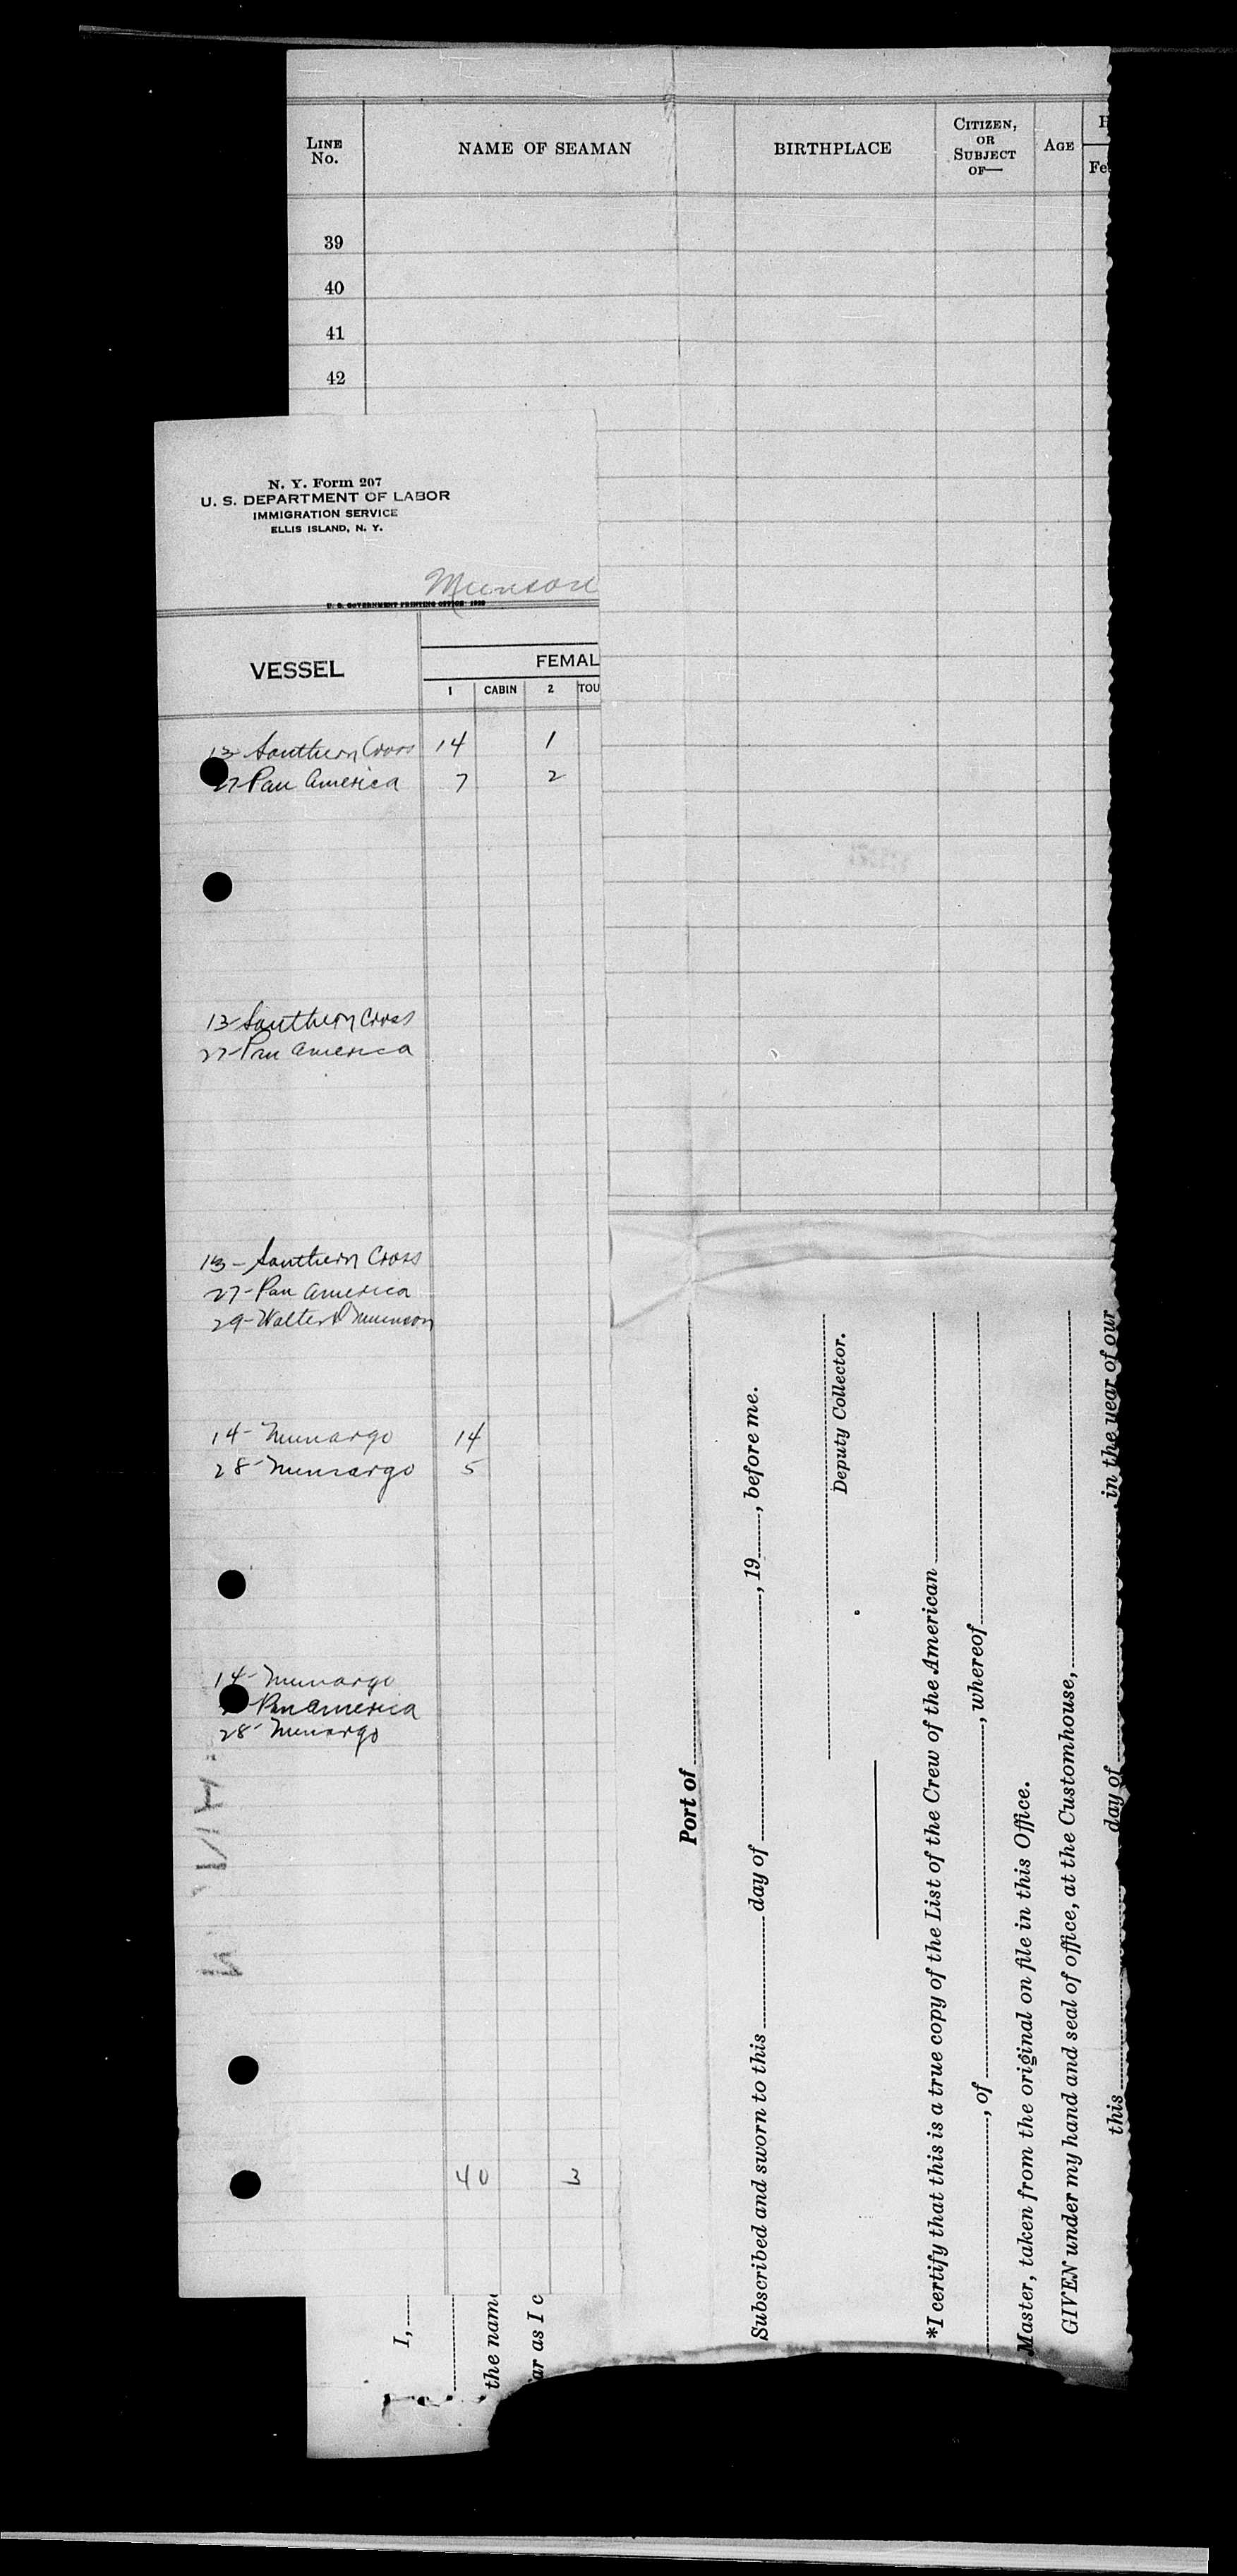 LINE No. NAME OF SEAMAN BIRTHPLACE CITIZEN, OR SUBJECT OF— AGE H
Fe
39
40
41
42
N. Y. Form 207
U. S. DEPARTMENT OF LABOR
IMMIGRATION SERVICE
ELLIS ISLAND, N. Y.
Munson
U. S. GOVERNMENT PRINTING OFFICE
VESSEL
FEMAL
1 CABIN 2 TOU
13- Southern Cross 14 1
27-Pan America 7 2
13-Southern Cross
27-Pan America
13- Southern Cross
27-Pan America
29-Walter D Munson
14- Munargo 14
28- Munargo 5
14- Munargo
Pan America
28- Munargo
40 3
I,
the nam
ar as I c
Port of
Subscribed and sworn to this day of , 19 , before me.
Deputy Collector.
*I certify that this is a true copy of the List of the Crew of the American
, of , whereof
Master, taken from the original on file in this Office.
GIVEN under my hand and seal of office, at the Customhouse,
this day of , in the year of our